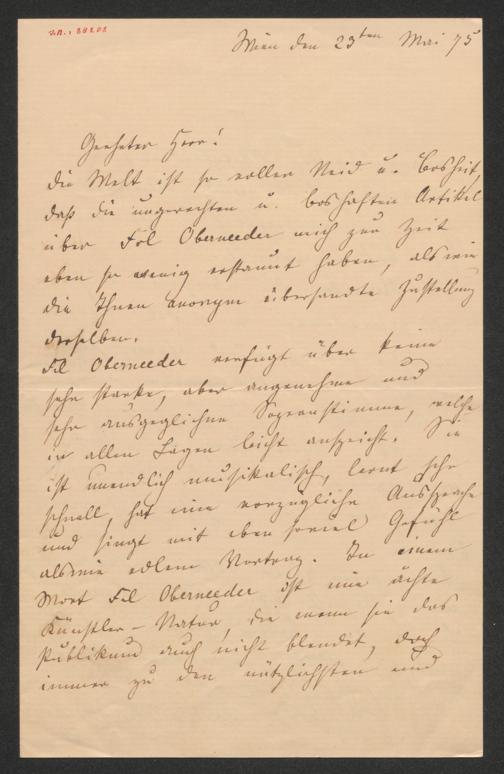 Wien den 23ten Mai 75
Geehrter Herr!
die Welt ist so voller Neid u. Bosheit,
daß die ungerechten u. boshaften Artikel
über Frl Oberneeder mich zur Zeit
eben so wenig erstaunt haben, als wie
die Ihnen anonym übersandte Zustellung
derselben.
Frl Oberneeder verfügt über keine
sehr starke, aber angenehme und
sehr ausgeglichne Sopranstimme, welche
in allen Lagen leicht anspricht. Sie
ist unendlich musikalisch, lernt sehr
schnell, hat eine vorzügliche Aussprache
und singt mit eben soviel Gefühl
als wie edlem Vortrag. In einem
Wort Frl Oberneeder ist eine ächte
Künstler-Natur, die wenn sie das
Publikum auch nicht blendet, doch
immer zu den nützlichsten und